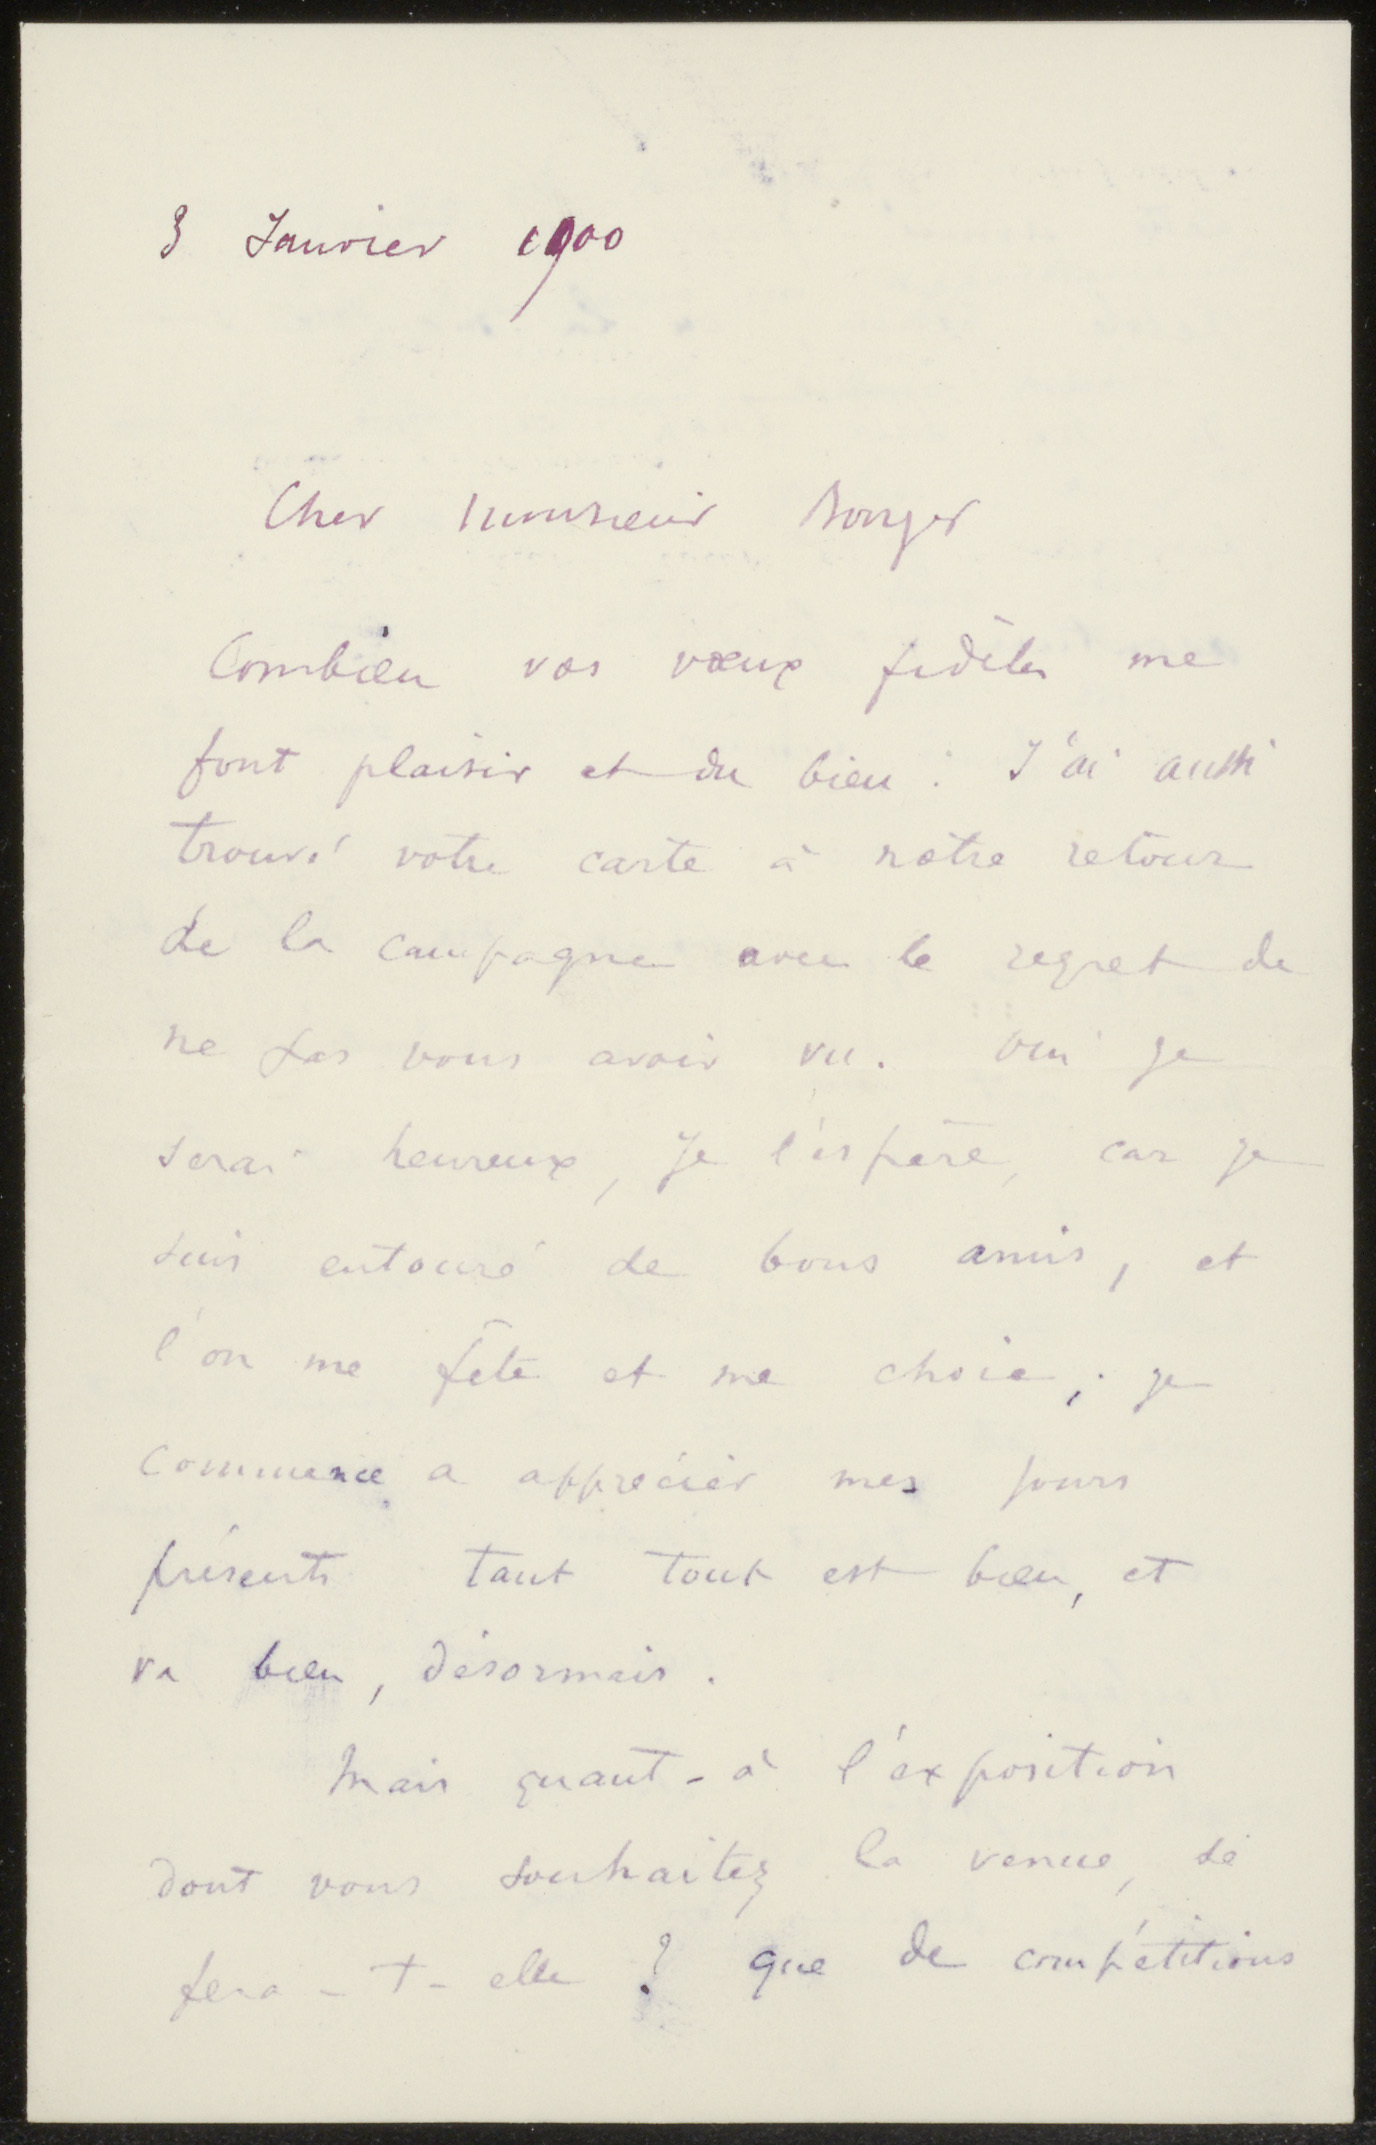 3 Janvier 1900
Cher Monsieur Bonger
Combien vos vœux fidèles me
font plaisir et du bien : J'ai aussi
trouvé votre carte à notre retour
de la campagne avec le regret de
ne pas vous avoir vu. Oui je
serai heureux, je l'espère, car je
suis entouré de bons amis, et
l'on me fête et me choie ; je
commence a apprécier mes jours
présents tant tout est bien, et
va bien, désormais.
Mais quant-à l'exposition
dont vous souhaitez la venue, se
fera-t-elle ? que de compétitions